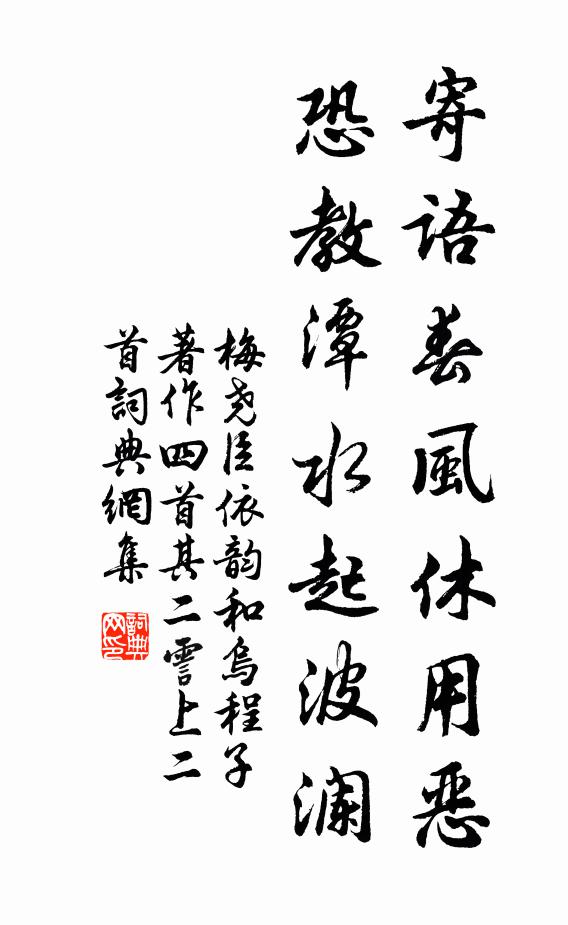 寄語春風休用惡
恐教潭水起波瀾
梅堯臣依韵和烏程子
著作四首其二雲上二
首詞典網集
詞典網印